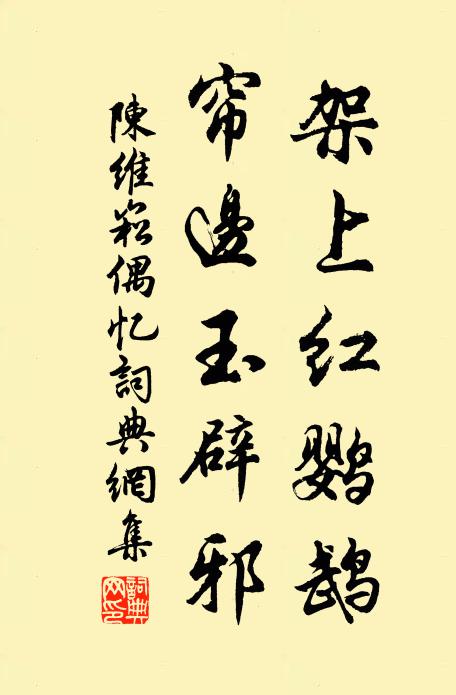 架上红鹦鹉
帘边玉辟邪
陳維崧偶忆詞典網集
詞典網印